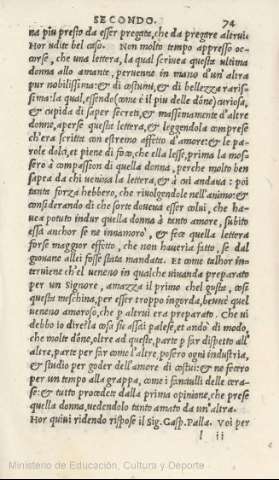 SECONDO. 74
na piu presto da esser pregata, che da pregare altrui.
Hor udite bel caso. Non molto tempo appresso oc-
corse, che una lettera, la qual scriuea questa ultima
donna allo amante, peruenne in mano d'un'altra
pur nobilissima: & di costumi, & di bellezza raris-
sima: la qual, essendo (come è il piu delle dõne) curiosa,
& cupida di saper secreti, & massimamente d'altre
donne, aperse questa lettera, & leggendola comprese
ch'era scritta con estremo affetto d'amore: & le pa-
role dolci, et piene di foco, che ella lesse, prima la mos-
sero à compassion di quella donna, perche molto ben
sapea da chi veniua la lettera, & à cui andaua: poi
tanta forza hebbero, che riuolgendole nell'animo: &
considerando di che sorte doueua esser colui, che ha-
uea potuto indur quella donna à tanto amore, subito
essa anchor se ne innamorò, & fece quella lettera
forse maggior effetto, che non haueria fatto, se dal
giouane allei fosse stata mandata. Et come talhor in-
teruiene ch'el ueneno in qualche uiuanda preparato
per un Signore, amazza il primo chel gusta, cosi
questa meschina, per esser troppo ingorda, beuuè quel
ueneno amoroso, che p altrui era preparato. Che ui
debbo io dire? la cosa fu assai palese, et andò di modo,
che molte dõne, oltre ad queste, parte p far dispetto all'
altre, parte per far come l'altre posero ogni industria,
& studio per goder dell'amore di costui: & ne fecero
per un tempo alla grappa, come i fanciulli delle cera-
se: & tutto procedete dalla prima opinione, che prese
quella donna, uedendolo tanto amato da un'altra.
Hor quiui ridendo rispose il Sig. Gasp. Palla. Voi per
l ii
Ministerio de Educación, Cultura y Deporte